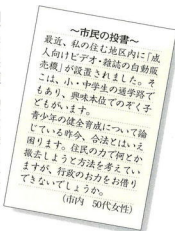 ～市民の投書～
最近、私の住む地区内に「成
人向けビデオ・雑誌の自動販
売機」が設置されました。そ
こは、小・中学生の通学路で
もあり、興味本位でのぞく子
どもがいます。
青少年の健全育成について論
じている昨今、合法とはいえ
困ります。住民の力で何とか
撤去しようと方法を考えてい
ますが、行政のお力をお借り
できないでしょうか。
（市内 50代女性）